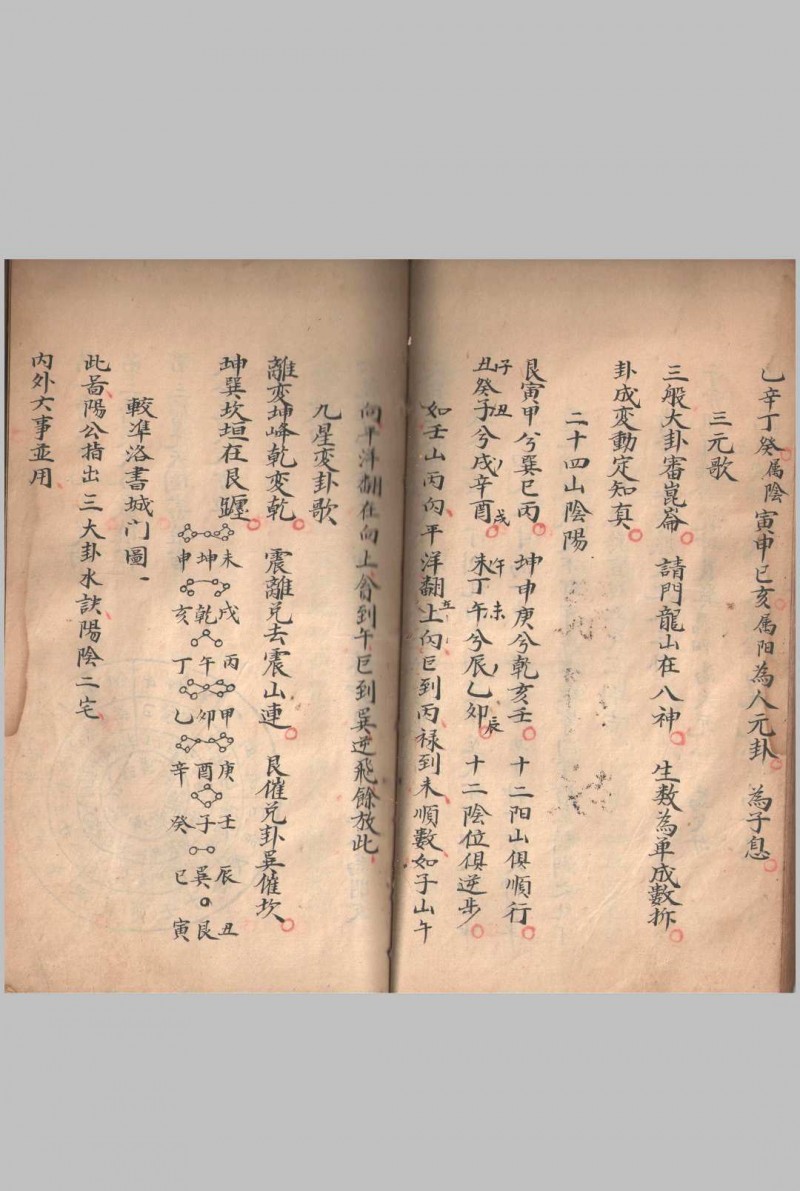 乙辛丁癸属陰 寅申巳亥属阳為人元卦 為子息
三元歌
三般大卦審崑崙 請門龍山在八神 生数為单成數拆
卦成变動定知真
二十四山陰陽
艮寅甲兮巽巳丙 坤申庚兮乾亥壬 十二阳山俱順行
子丑 戌 午未 辰
丑癸子兮戌辛酉 未丁午兮辰乙卯 十二陰位俱逆步
如壬山丙向平洋翻上向巨到丙禄到未順數如子山午
向平洋翻在向上
到午巨到巽逆飛餘放此
九星变卦歌
離变坤峰乾变乾 震離兑去震山連 艮催兑卦巽催坎
坤巽坎垣在艮躔
未坤申
戌乾亥
丙午丁
甲卯乙
庚酉辛
壬子癸
辰巽巳
丑艮寅
較準洛書城门圖
此啚陽公指出三大卦水訣陽陰二宅
内外大事並用